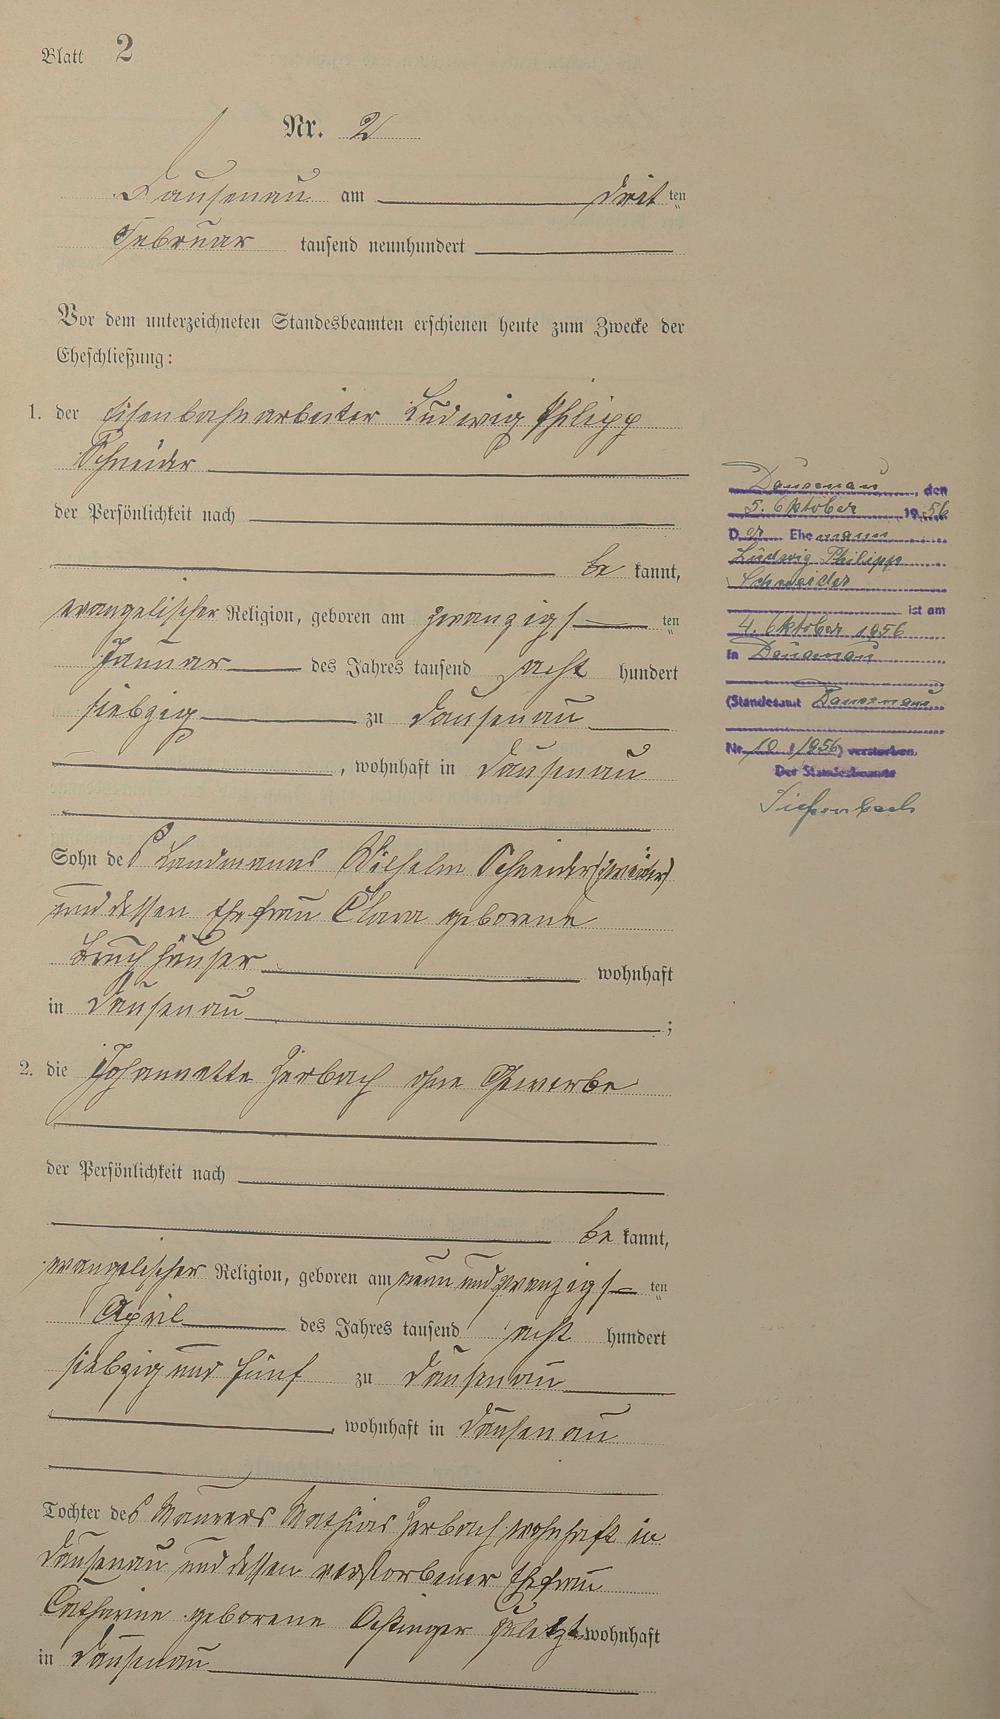 Blatt 2
Nr. 2
Dausenau am drit ten
Februar tausend neunhundert
Vor dem unterzeichneten Standesbeamten erschienen heute zum Zwecke der
Eheschließung:
1. der Eisenbahnarbeiter Ludwig Philipp
Schneider
der Persönlichkeit nach
be kannt,
evangelischer Religion, geboren am zwanzigs ten
Januar des Jahres tausend acht hundert
siebzig zu Dausenau
, wohnhaft in Dausenau
Sohn des Landmanns Wilhelm Schneider (zweiter)
und dessen Ehefrau Clara geborene
Bruchhäuser wohnhaft
in Dausenau ;
2. die Johannette Zerbach ohne Gewerbe
der Persönlichkeit nach
be kannt,
evangelischer Religion, geboren am neun und zwanzigs ten
April des Jahres tausend acht hundert
siebzig und fünf zu Dausenau
, wohnhaft in Dausenau
Tochter des Maurers Mathias Zerbach wohnhaft in
Dausenau und dessen verstorbener Ehefrau
Catharine geborene zuletzt wohnhaft
in Dausenau
Dausenau, den
5. Oktober 1956
Der Ehemann
Ludwig Philipp
Schneider
ist am
4. Oktober 1956
in Dausenau
(Standesamt Dausenau
Nr. 10 / 1956) verstorben.
Der Standesbeamte